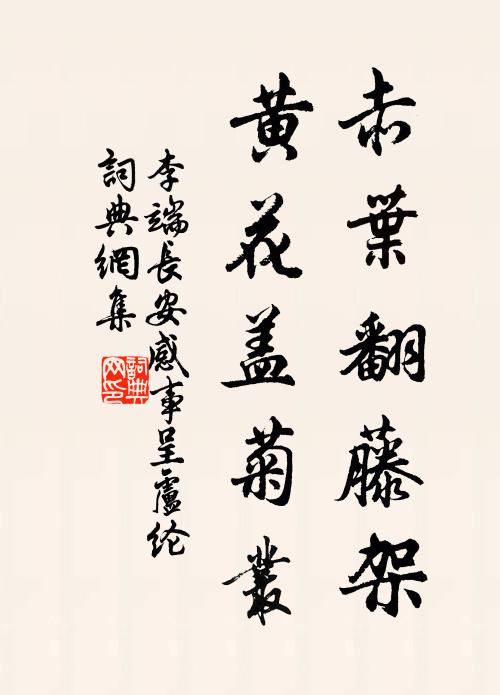 赤葉翻藤架
黄花盖菊叢
李端長安感事呈盧纶
詞典網集
詞典网印